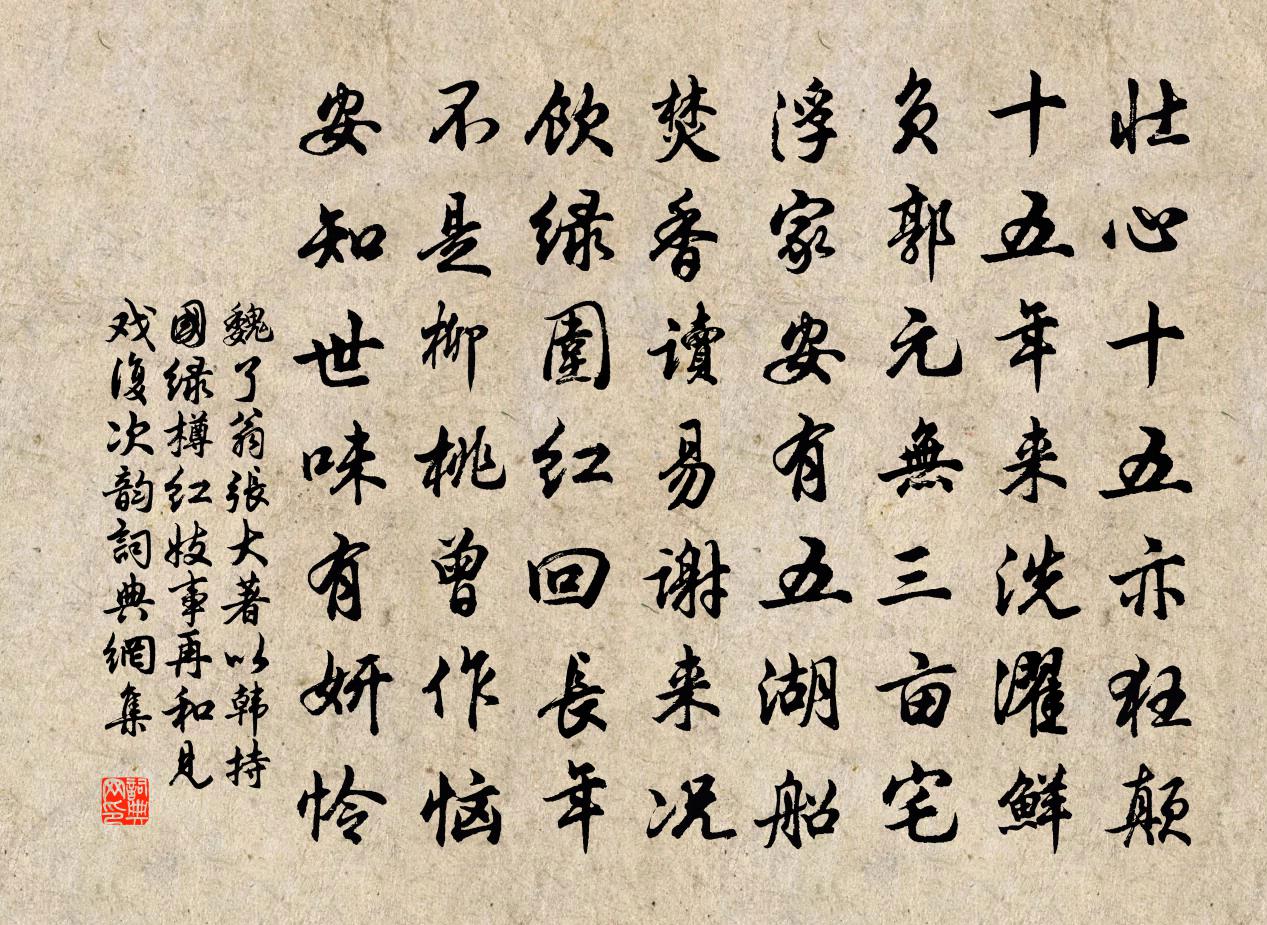 壮心十五亦狂颠
十五年来洗濯鲜
负郭元無三亩宅
浮家安有五湖船
焚香讀易谢来况
飲绿圍红回長年
不是柳桃曾作恼
安知世味有妍怜
魏了翁張大著以韩持
國绿樽红妓事再和见
戏復次韵詞典網集
詞典
网印